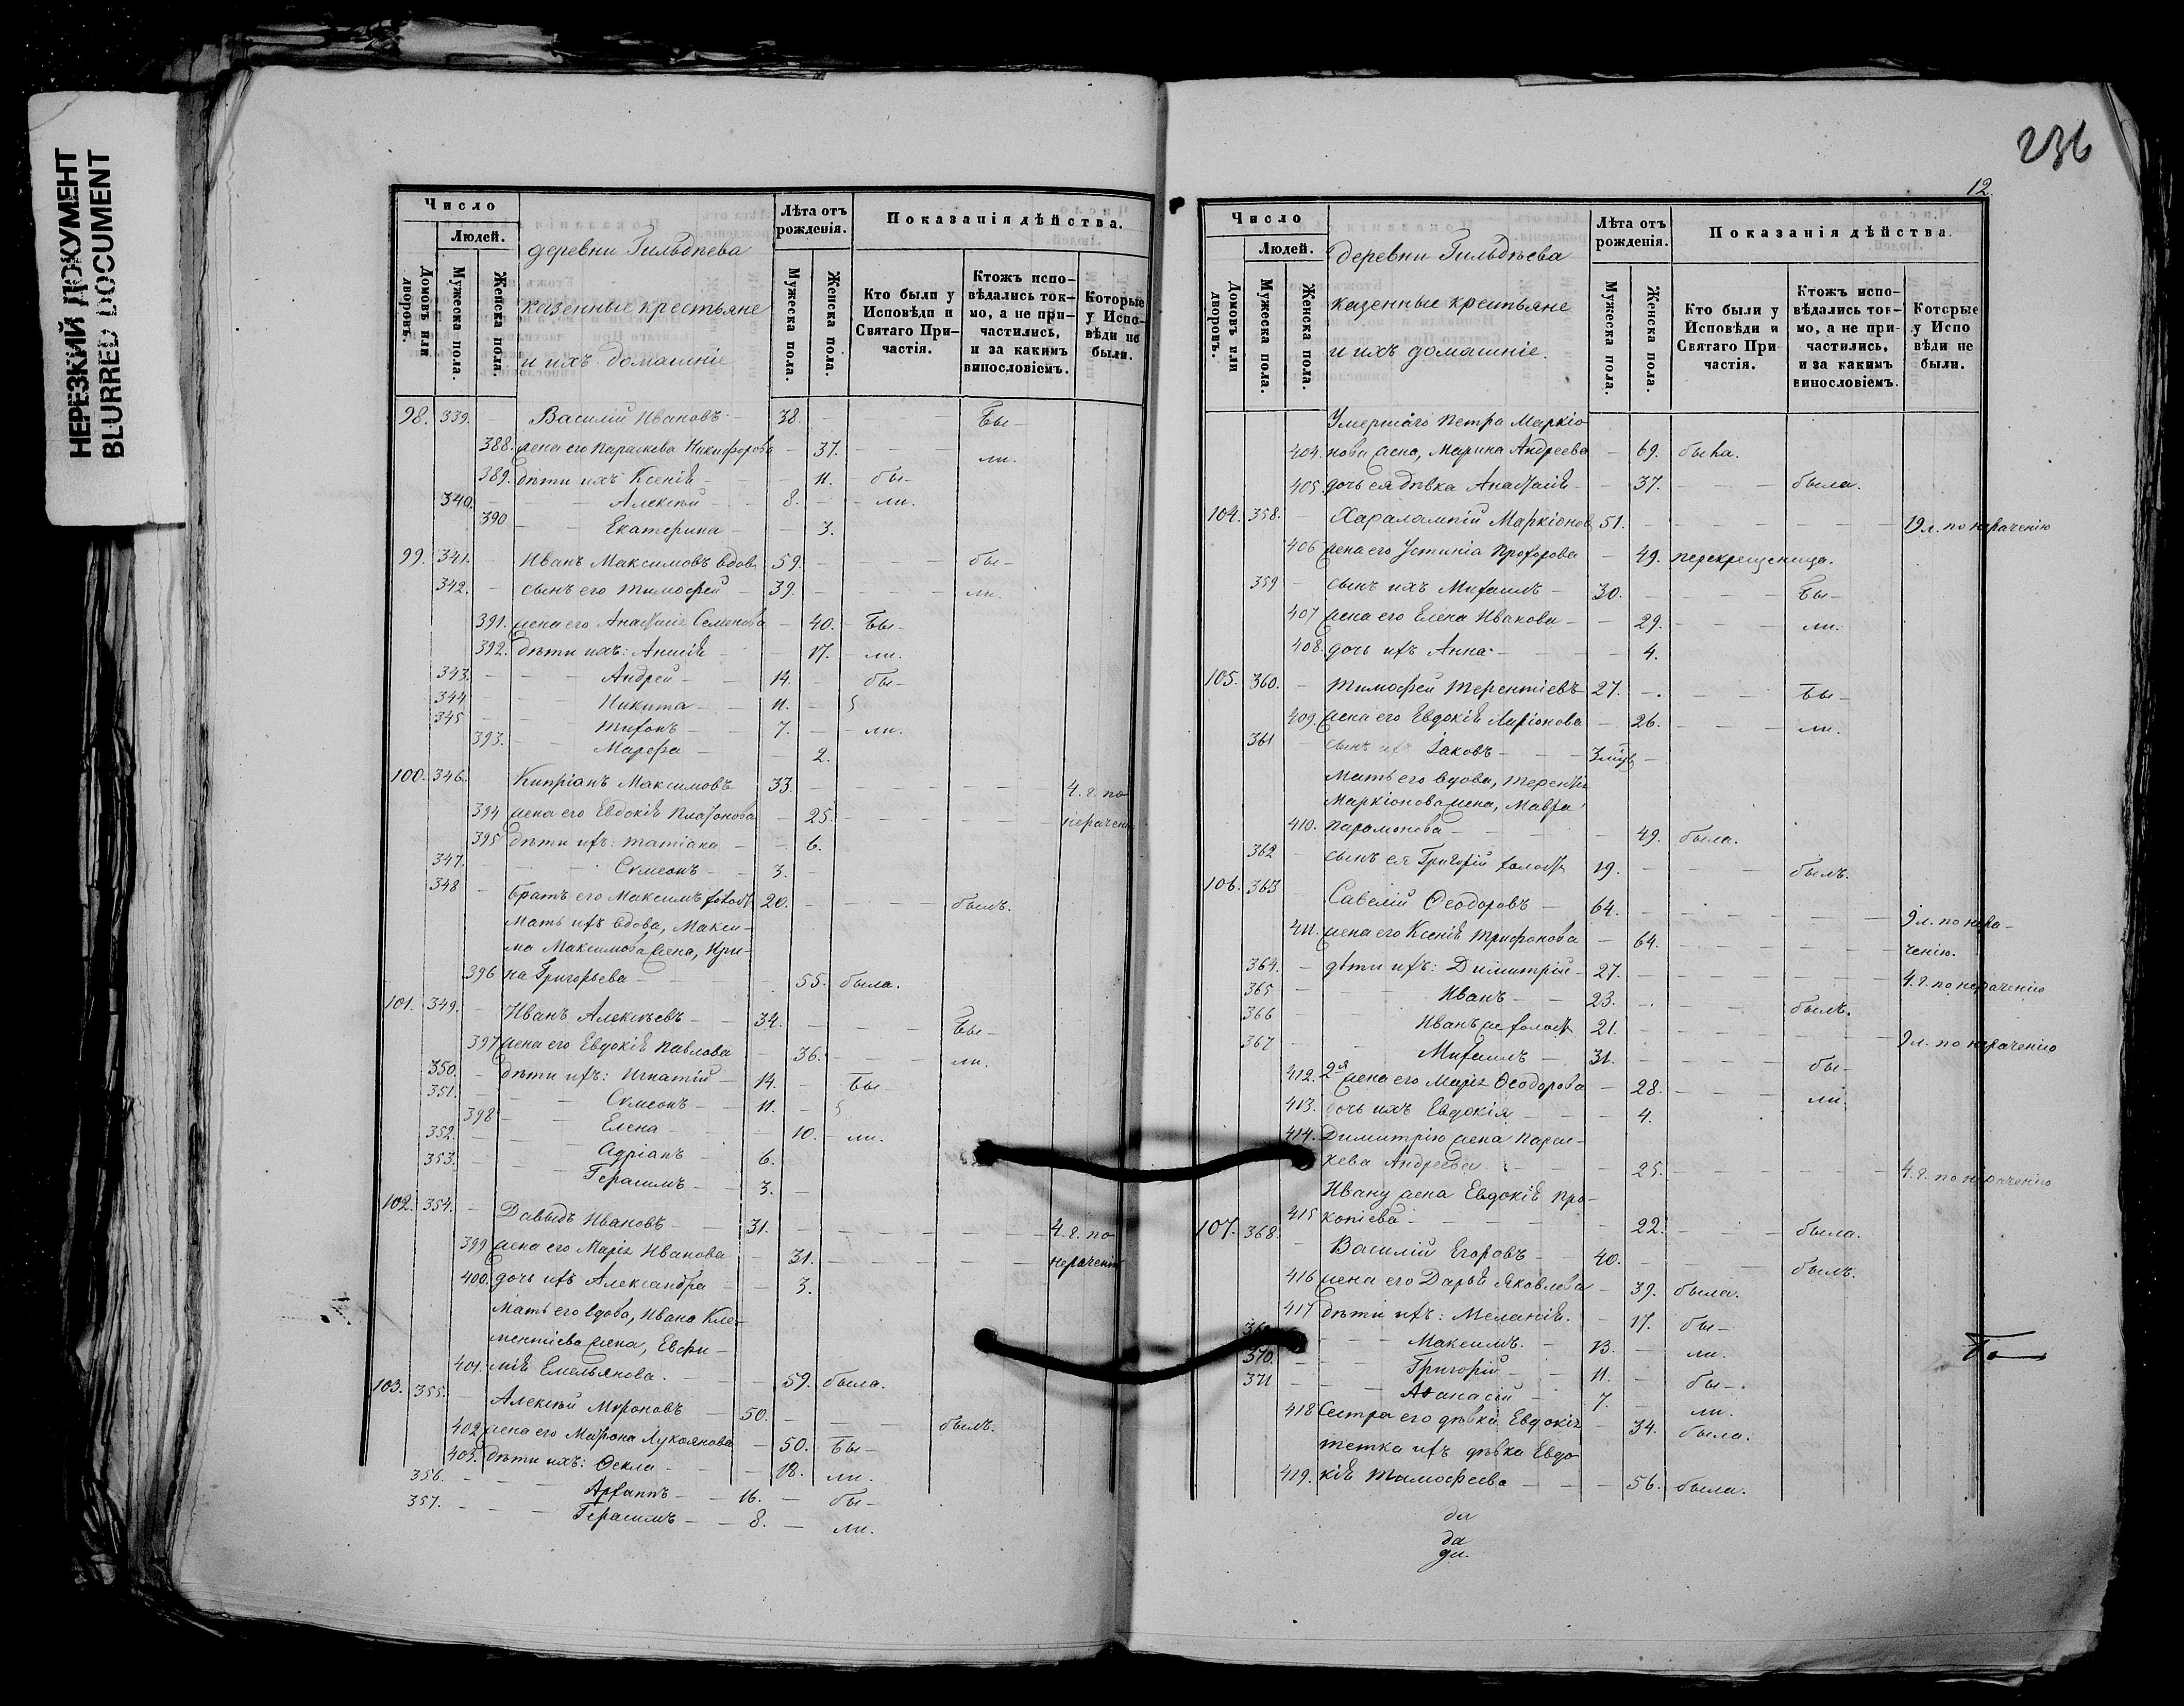 НЕРЕЗКИЙ ДОКУМЕНТ
BLURRED DOCUMENT
Число
Людей.
Домовъ или дворовъ.
Мужеска пола.
Женска пола.
деревни Гильдѣева
казенные крестьяне
и ихъ домашніе
Лѣта отъ рожденія.
Мужеска пола.
Женска пола.
Показанія дѣйства.
Кто были у Исповѣди и Святаго При-частія.
Ктожъ испо-вѣдались ток-мо, а не при-частились, и за какимъ винословіемъ.
Которые у Испо-вѣди не были.
98. 339. Василій Ивановъ 38. бы-
388. жена его Параскева Никифорова 37. ли.
389. дѣти ихъ: Ксенія 11. бы-
340. Алексѣй 8. ли.
390 Екатерина 3.
99. 341. Иванъ Максимовъ вдовъ 59. бы-
342. сынъ его Тимофей 39. ли.
391. жена его Анастасія Семенова 40. бы-
392. дѣти ихъ: Анисія 17. ли.
343. Андрей 14. бы-
344 Никита 11.
345 Тихонъ 7. ли.
393. Марфа 2.
100. 346. Кипріанъ Максимовъ 33. 4. г. по
394 жена его Евдокія Платонова 25. нерачен
395 дѣти ихъ: Татіана 6.
347. Симеонъ 3.
348 братъ его Максимъ холост 20. былъ.
Мать ихъ вдова, Макси-
ма Максимова жена, Ири-
396 на Григорьева 55. была.
101. 349. Иванъ Алексѣевъ 34. бы-
397 жена его Евдокія Павлова 36. ли.
350. дѣти ихъ: Игнатій 14. бы-
351. Симеонъ 11.
398 Елена 10. ли.
352. Адріанъ 6.
353. Герасимъ 3.
102. 354. Давыдъ Ивановъ 31. 4. г. по
399 жена его Марія Иванова 31. нерачен
400. дочь ихъ Александра 3.
Мать его вдова, Ивана Кле-
ментіева жена, Евфи-
401. мія Емельянова. 59. была.
103. 355. Алексѣй Мироновъ 50. былъ.
402 жена его Матрона Лукоянова 50. бы-
403. дѣти ихъ: Ѳекла 18. ли.
356. Архиппъ 16. бы-
357. Герасимъ 8. ли.
236
12.
Число
Людей.
Домовъ или дворовъ.
Мужеска пола.
Женска пола.
деревни Гильдѣева
казенные крестьяне
и ихъ домашніе.
Лѣта отъ рожденія.
Мужеска пола
Женска пола.
Показанія дѣйства.
Кто были у Исповѣди и Святаго При частія.
Ктожъ испо-вѣдались ток-мо, а не при-частились, и за какимъ винословіемъ.
Которые у Испо вѣди не были.
Умершаго Петра Маркіо
404. нова жена, Марина Андреева 69. была.
405. дочь ея дѣвка Анастасія 37. была.
104. 358. Харалампій Маркіонов 51. 19 л. по нераченію
406 жена его Устинія Прохорова 49. перекрещеница.
359 сынъ ихъ Михаилъ 30. бы-
407 жена его Елена Иванова 29. ли.
408. дочь ихъ Анна 4.
105. 360. Тимофей Терентіевъ 27. бы-
409. жена его Евдокія Ларіонова 26. ли.
361 сынъ ихъ Іаковъ 3 мцъ
Мать его вдова, Терентія
Маркіонова жена, Мавра
410. Парамонова 49. была.
362 сынъ ея Григорій холост 19. былъ.
106. 363 Савелій Ѳеодоровъ 64. 9 л. по нера-
411. жена его Ксенія Трифонова 64. ченію.
364. дѣти ихъ: Димитрій 27. 4. г. по нераченію
365 Иванъ 23. былъ.
366 Иванъ же холост 21. 9 л. по нераченію
367 Михаилъ 31. бы-
412. 2я жена его Марія Ѳеодорова 28. ли
413. дочь ихъ Евдокія 4.
414. Димитрію жена Парас-
кева Андреева 25. 4. г. по нераченію
Ивану жена Евдокія Про-
415 копіева 22. была.
107. 368. Василій Егоровъ 40. былъ.
416 жена его Дарья Яковлева 39. была.
417 дѣти ихъ: Меланія. 17. бы-
Максимъ. 13. ли.
370. Григорій 11. бы-
371 Аѳанасій 7. ли.
418 Сестра его дѣвка Евдокія 34. была.
тетка ихъ дѣвка Евдо-
419. кія Тимофеева 56. была.